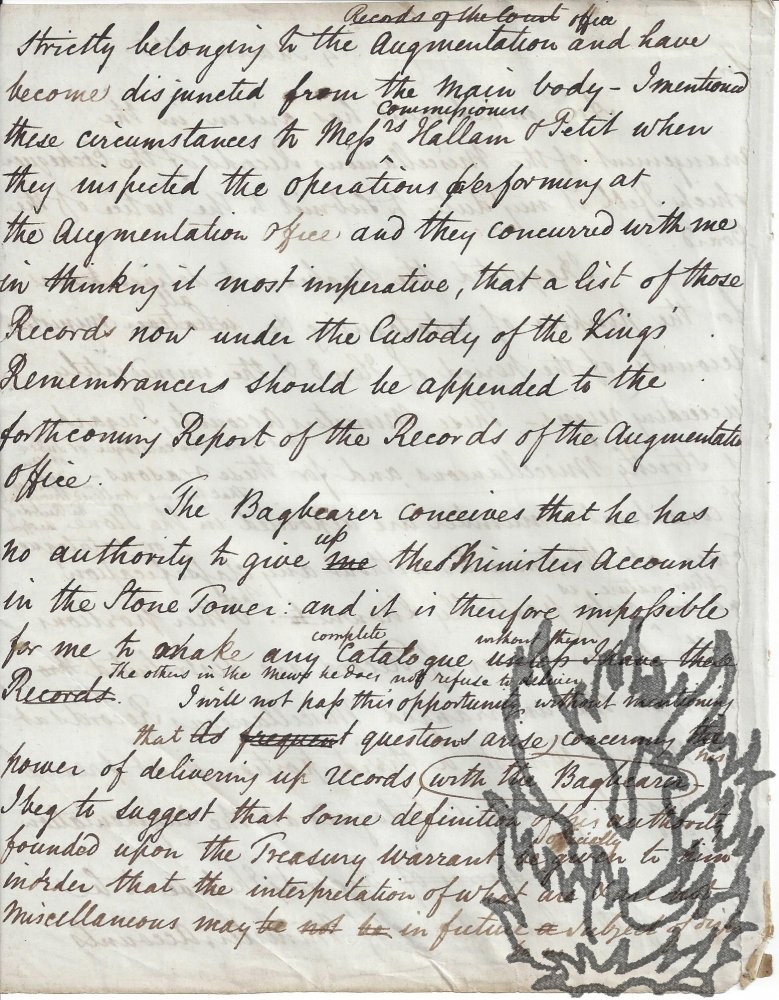 Records of the Court office
strictly belonging to the Augmentation and have
become disjuncted from the main body - I mentioned
Commissioners
these circumstances to Messrs Hallam & Petit when
they inspected the operations performing at
the Augmentation office and they concurred with me
in thinking it most imperative, that a list of those
Records now under the Custody of the Kings'
Remembrancers should be appended to the
forthcoming Report of the Records of the Augmentatn
office.
The Bagbearer conceives that he has
up
no authority to give me the Ministers Accounts
in the Stone Tower: and it is therefore impossible
complete without them
for me to make any Catalogue unless I have these
The others in the Mews he does not refuse to deliver
Records. I will not pass this opportunity without mentioning
that As frequent questions arise, concerning the
his
power of delivering up records (with the Bagbearer)
I beg to suggest that some definition of his authority
officially
founded upon the Treasury warrant be given to him
in order that the interpretation of what are & are not
Miscellaneous may be not be in future a subject of